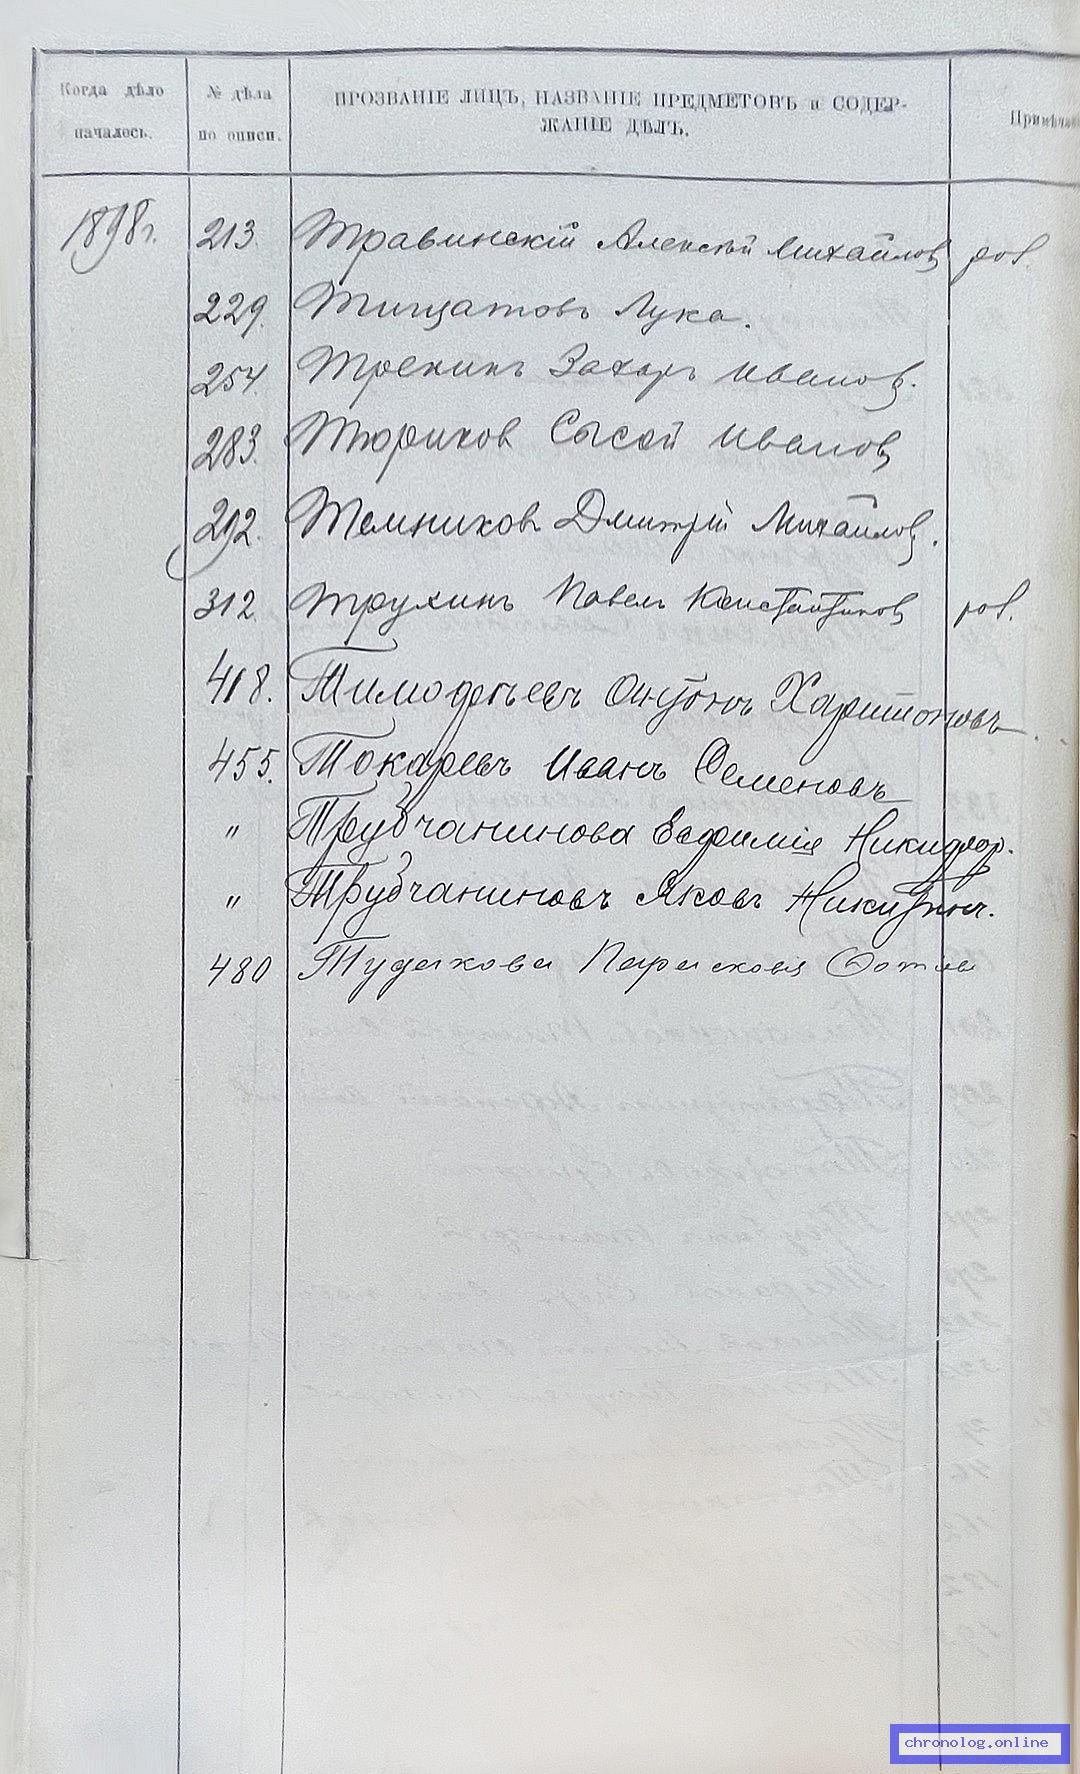 Когда дѣло началось.
№ дѣла по описи.
ПРОЗВАНІЕ ЛИЦЪ, НАЗВАНІЕ ПРЕДМЕТОВЪ и СОДЕР-
ЖАНІЕ ДѢЛЪ.
1898 г. 213. Травинскій Алексѣй Михайлов
229. Тищатовъ Лука.
254. Трекинъ Захаръ Иванов.
283. Тюриков Сысой Иванов
292. Темниковъ Дмитрій Михайлов.
312 Трухинъ Павелъ Константинов
418. Тимофѣевъ Антонъ Харитоновъ
455. Токаревъ Иванъ Семеновъ
" Трубчанинова Евфимія Никифор.
" Трубчаниновъ Яковъ Никитич.
480 Тудакова
chronolog.online